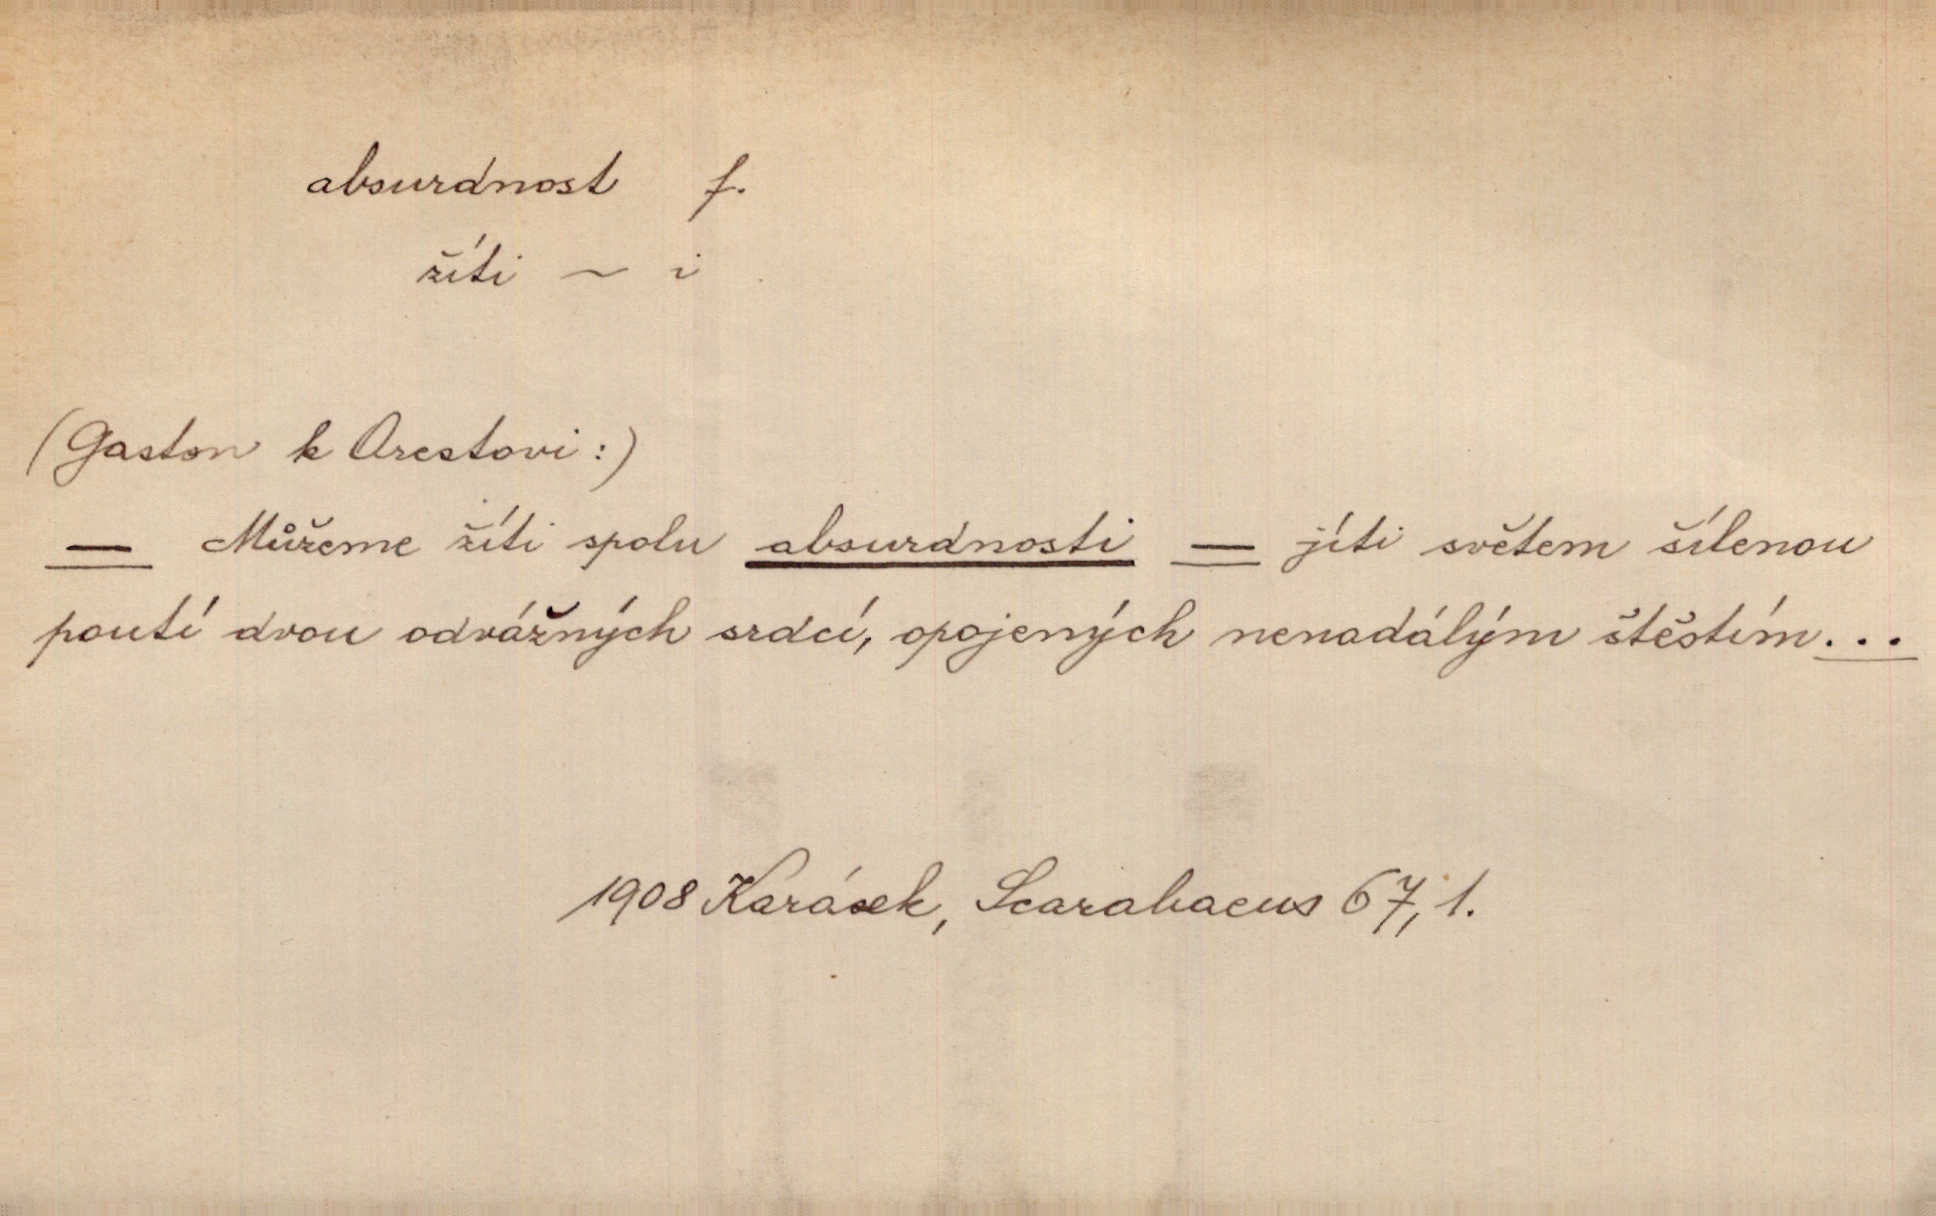 absurdnost f.
žíti ~ i
(Gaston k Orestovi:)
— Můžeme žíti spolu absurdnosti — jíti světem šílenou
poutí dvou odvážných srdcí, opojených nenadálým štěstím...
1908 Karásek, Scarabaeus 67, 1.